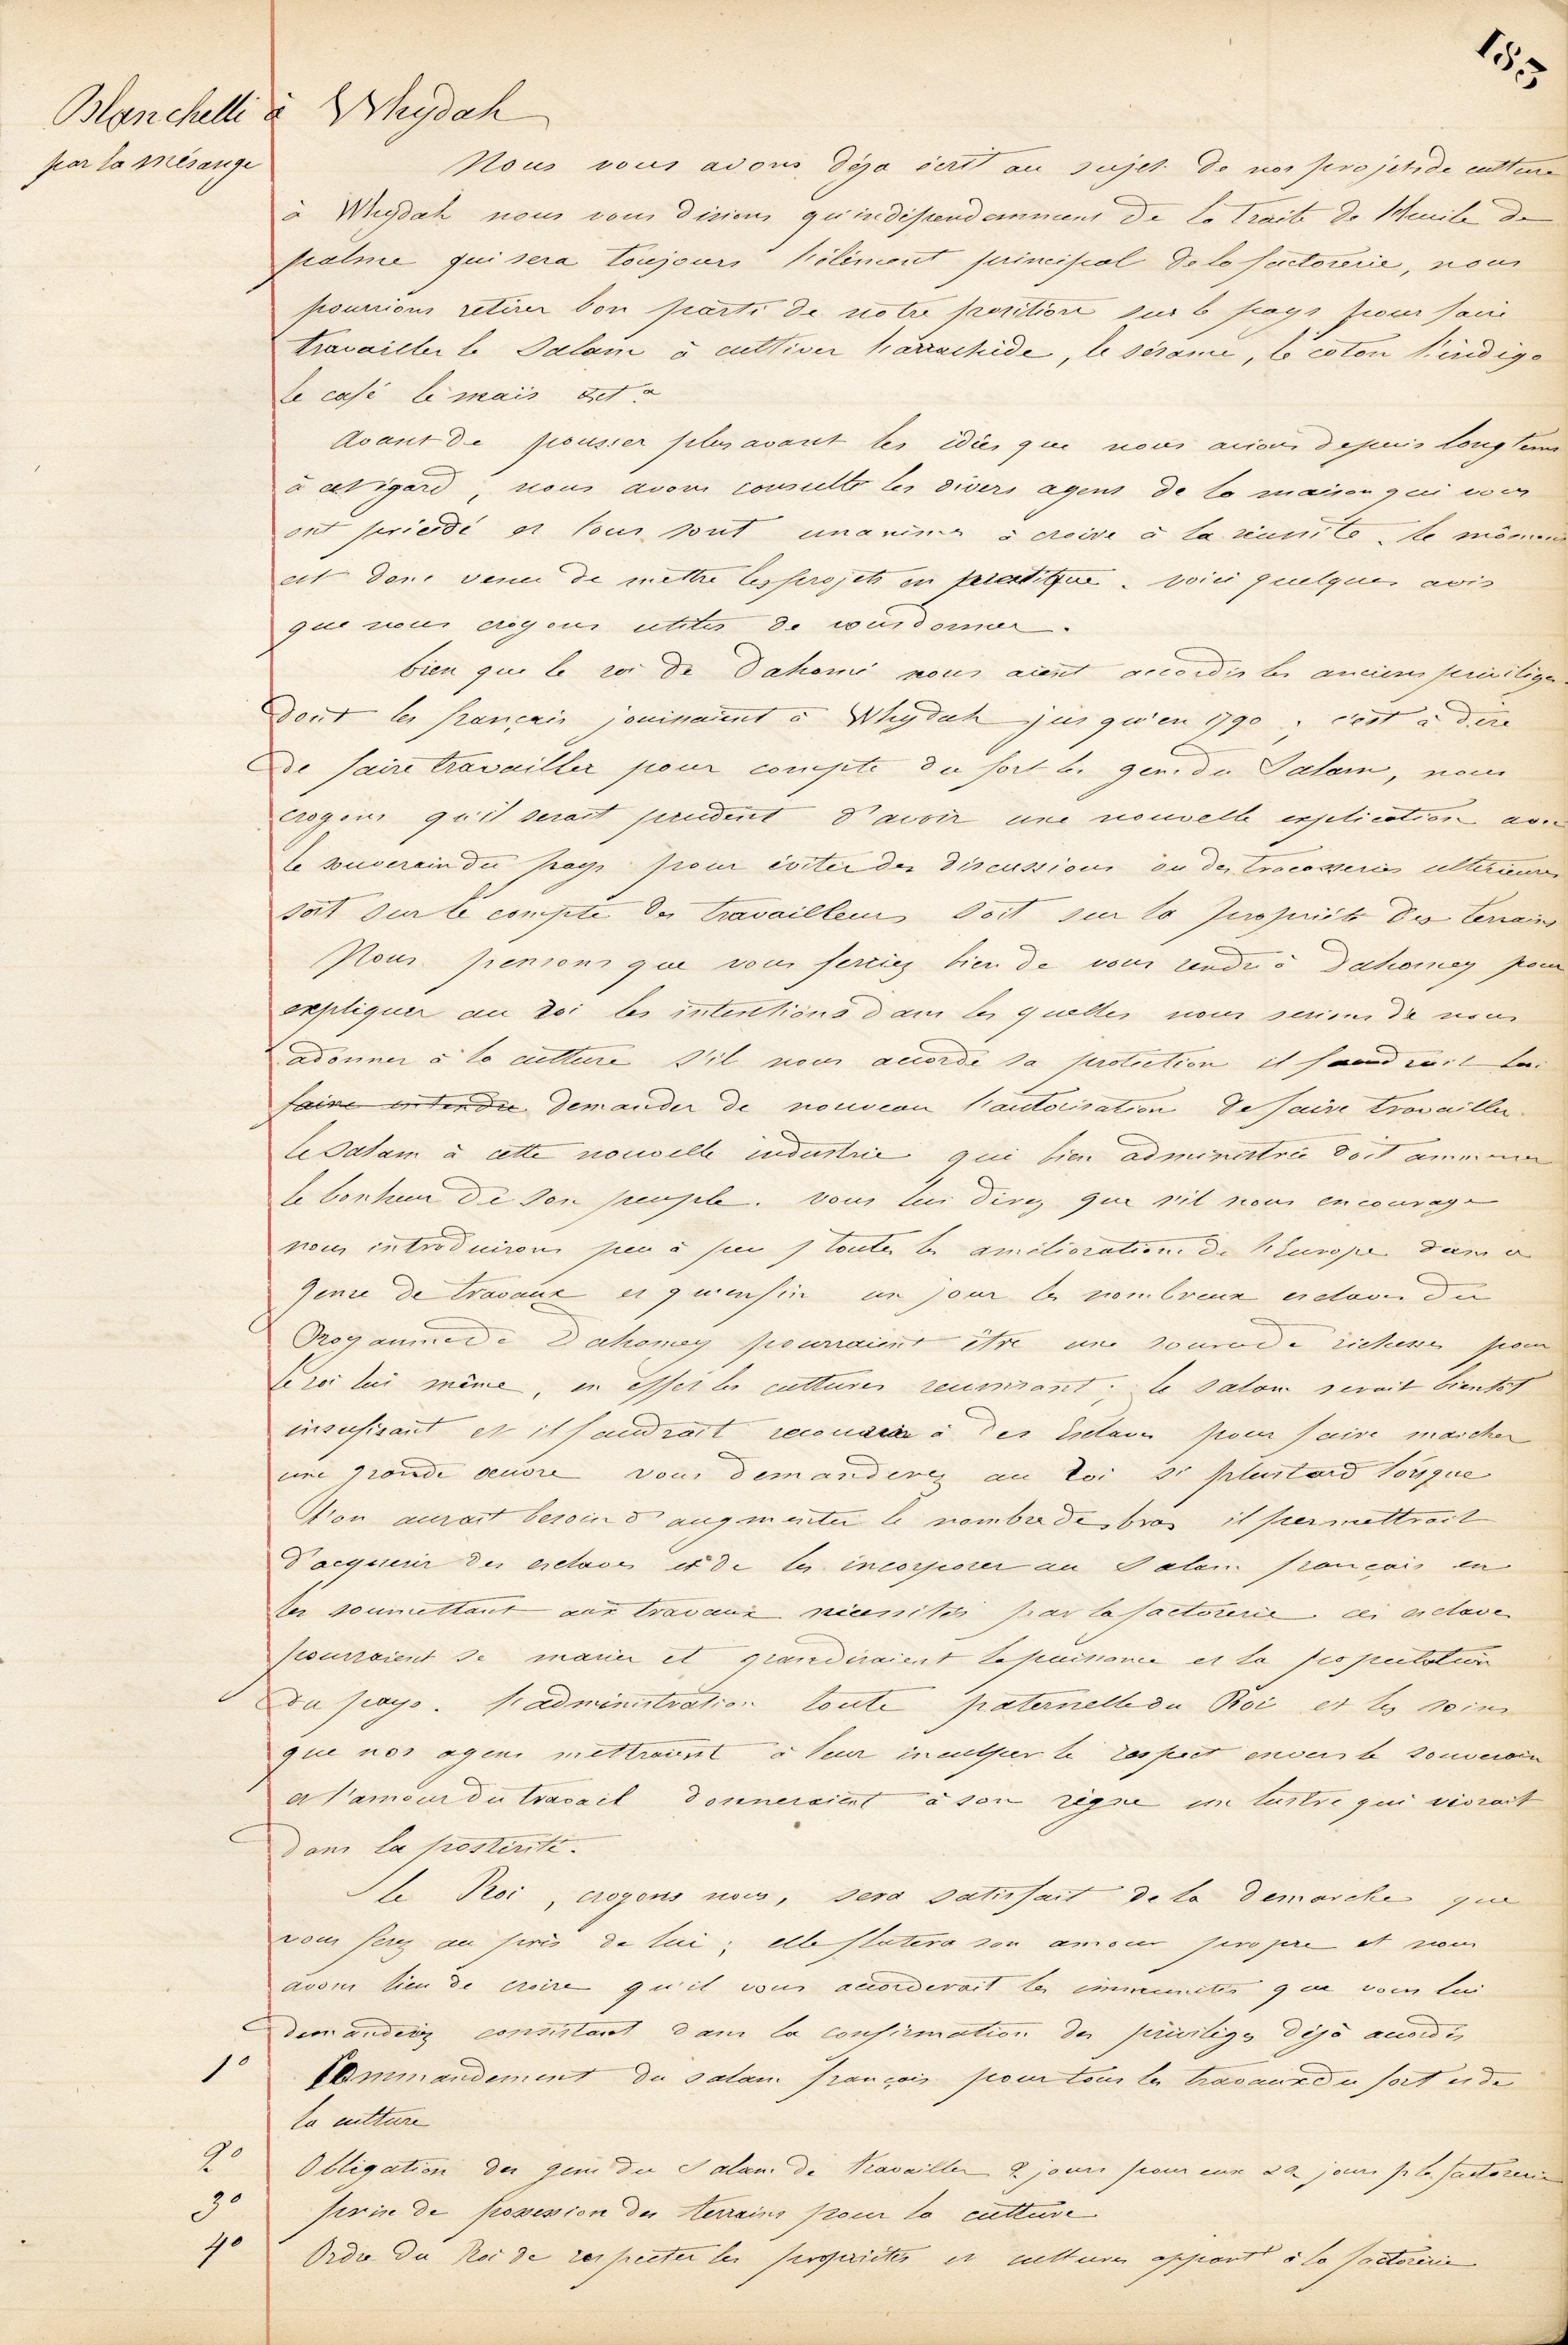 153
Blanchelli à Whydah
par la mésange
Nous vous avons deja écrit au sujet de nos projets de culture
à Whydah nous vous disions qu'indépendamment de la traite de l'huile de
palme qui sera toujours l'élément principal de la factorerie, nous
pourrions retirer bon parti de notre position sur le pays pour faire
travailler le Salam à cultiver l'arrachide, le sésame, le coton l'indigo
le café le mais et ca
Avant de pousser plus avant les idées que nous avions depuis longtems
à cet égard, nous avons consulté les divers agens de la maison qui vous
ont précédé et tous sont unanimes à croire à la réussite. le moment
est donc venu de mettre les projets en pratique. voici quelques avis
que nous croyons utiles de vous donner.
bien que le roi de Dahomé nous aient accordés les anciens privilèges
dont les français jouissaient à Whydah jusqu'en 1790, c'est à dire
de faire travailler pour compte du fort les gens du Salam, nous
croyons qu'il serait prudent d'avoir une nouvelle explication avec
le souverain du pays pour éviter des discussions ou des tracasseries ultérieures
soit sur le compte des travailleurs soit sur la propriété des terrains
Nous pensons que vous ferriez bien de vous rendre à Dahomey pour
expliquer au roi les intentions dans les quelles nous serions de nous
adonner à la culture s'il nous accorde sa protection il faudrait lui
faire entendre demander de nouveau l'autorisation de faire travailler
le Salam à cette nouvelle industrie qui bien administrée doit ammener
le bonheur de son peuple. vous lui direz que s'il nous encourage
nous introduirons peu à peu toutes les améliorations de l'Europe dans ce
genre de travaux et qu'enfin un jour les nombreux esclaves du
Royaume de Dahomey pourraient être une source de richesses pour
le roi lui même, en effet les cultures reussissant, le salam serait bientot
insufisant et il faudrait recourir à des Esclaves pour faire marcher
une grande oeuvre vous demanderez au Roi si plustard lorsque
l'on aurait besoin d'augmenter le nombre des bras il permettrait
d'acquerir des esclaves et de les incorporer au Salam français en
les soumettant aux travaux nécessités par la factorerie ces esclaves
pourraient se marier et grandiraient la puissance et la population
du pays. l'administration toute paternelle du Roi et les soins
que nos agens mettraient à leur inculquer le respect envers le souverain
et l'amour du travail donneraient à son règne un lustre qui vivrait
dans la postérité.
Le Roi, croyons nous, sera satisfait de la demarche que
vous ferez au près de lui; elle flatera son amour propre et nous
avons lieu de croire qu'il vous accorderait les immunités que vous lui
demanderiez consistant dans la confirmation des privilèges déjà accordés
1° Commandement du salam français pour tous les travaux du fort et de
la culture
2° Obligation des gens du Salam de travailler 2 jours pour eux & 2 jours p. la factorerie
3° prise de possession des terrains pour la culture
4° Ordre du Roi de respecter les propriétés et cultures appart à la factorerie